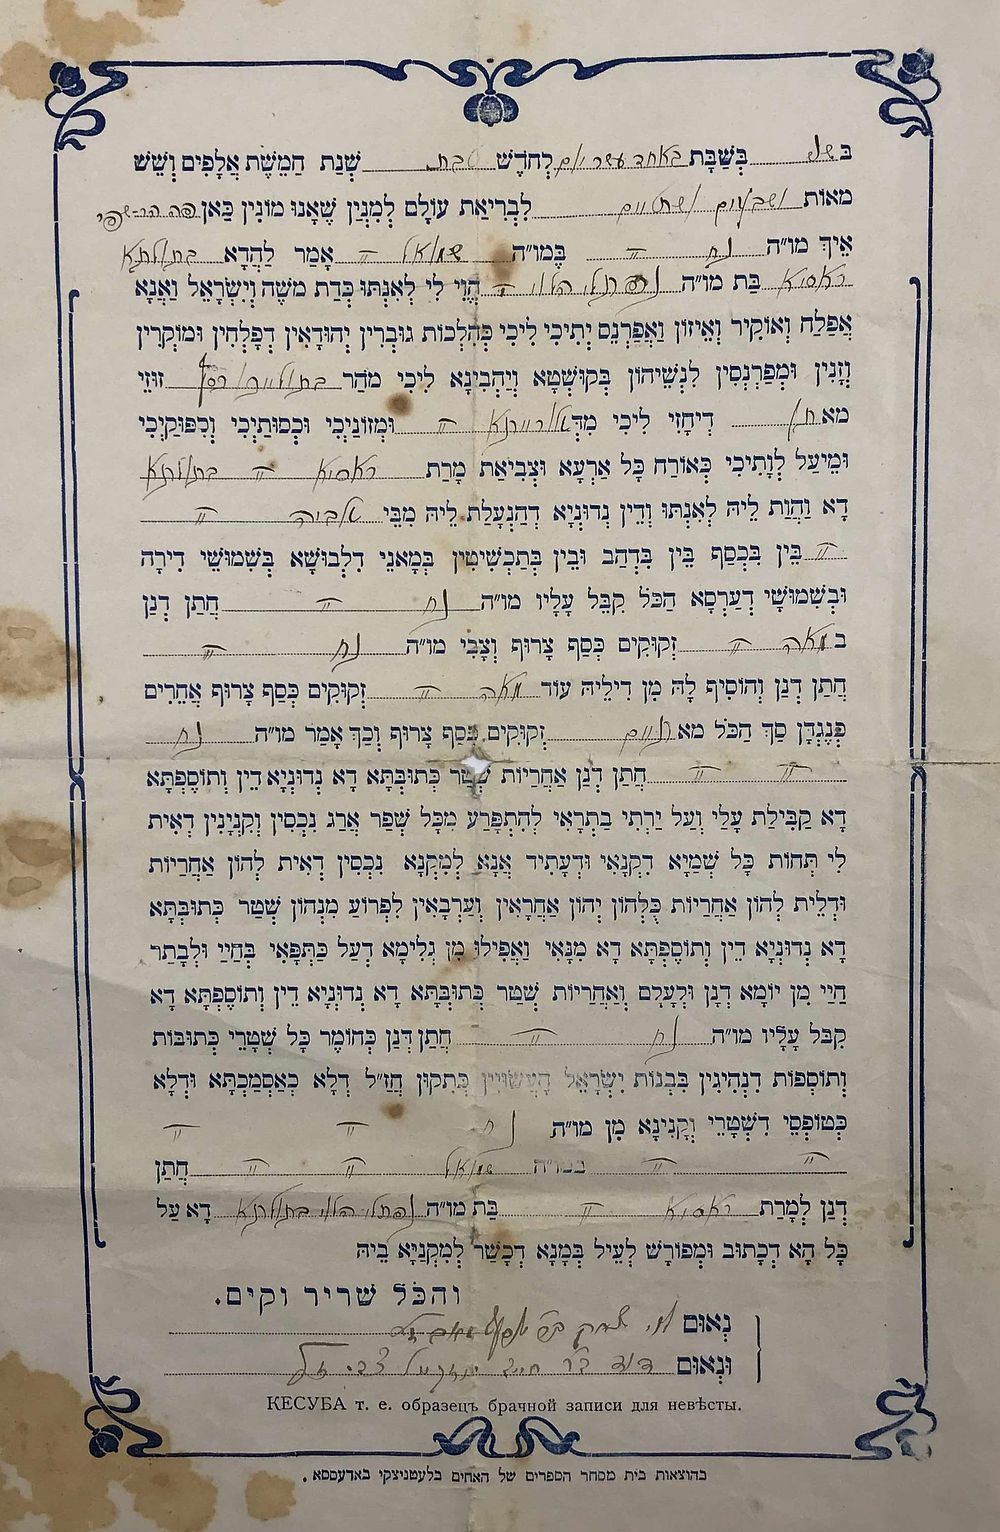 ב בְּשַׁבָּת באחד עשר יום לְחֹדֶשׁ טבת שְׁנַת חֲמֵשֶׁת אֲלָפִים וְשֵׁשׁ
מֵאוֹת ושבעים ושתים לִבְרִיאַת עוֹלָם לְמִנְיַן שֶׁאָנוּ מוֹנִין כַּאן פה
אֵיךְ מו״ה נח בְּמו״ה שמואל אָמַר לַהֲדָא בתולתא
ראסיא בַּת מו״ה נפתלי הלוי הֱוֵי לִי לְאִנְתּוּ כְּדַת מֹשֶׁה וְיִשְׂרָאֵל וַאֲנָא
אֶפְלַח וְאוֹקִיר וְאֵיזוֹן וַאֲפַרְנֵס יָתִיכִי לִיכִי כְּהִלְכוֹת גּוּבְרִין יְהוּדָאִין דְּפָלְחִין וּמוֹקְרִין
וְזָנִין וּמְפַרְנְסִין לִנְשֵׁיהוֹן בְּקוּשְׁטָא וְיָהִבְינָא לִיכִי מֹהַר בתוליכי כסף זוּזֵי
מאתן דְּיחָזֵי לִיכִי מִדְּאורייתא וּמְזוֹנַיְכִי וּכְסוּתַיְכִי וְסִפּוּקַיְכִי
וּמֵיעַל לְוָתֵיכִי כְּאוֹרַח כָּל אַרְעָא וּצְבִיאַת מָרַת ראסיא בתולתא
דָא וַהֲוַת לֵיהּ לְאִנְתּוּ וְדֵין נְדוּנְיָא דְהַנְעֲלַת לֵיהּ מִבֵּי אביה
בֵּין בִּכְסַף בֵּין בִּדְהַב וּבֵין בְּתַכְשִׁיטִין בְּמָאנֵי דִלְבוּשָׁא בְּשִׁמּוּשֵׁי דִירָה
וּבְשִׁמוּשֵׁי דְעַרְסָא הַכֹּל קִבֵּל עָלָיו מו״ה נח חֲתַן דְּנַן
ב מאה זְקוּקִים כֶּסֶף צָרוּף וְצָבִי מו״ה נח
חֲתַן דְּנַן וְהוֹסִיף לָהּ מִן דִּילֵיהּ עוֹד מאה זְקוּקִים כֶּסֶף צָרוּף אֲחֵרִים
כְּנֶגְדָּן סַךְ הַכֹּל מאתיים זְקוּקִים כֶּסֶף צָרוּף וְכַךְ אָמַר מו״ה נח
חֲתַן דְּנַן אַחֲרָיוּת שְׁטַר כְּתוּבְתָּא דָא נְדוּנְיָא דֵין וְתוֹסֶפְתָּא
דָא קַבִּילַת עָלַי וְעַל יַרְתַּי בַתְרָאִי לְהִתְפָּרַע מִכָּל שְׁפַר אֲרַג נִכְסִין וְקִנְיָנִין דְאִית
לִי תְּחוֹת כָּל שְׁמַיָּא דִקְנָאִי וּדְעָתִיד אֲנָא לְמִקְנָא נִכְסִין דְאִית לְהוֹן אַחֲרָיוּת
וּדְלֵית לְהוֹן אַחֲרָיוּת כֻּלְּהוֹן יְהוֹן אַחֲרָאִין וְעַרְבָאִין לִפְרוֹעַ מִנְּהוֹן שְׁטַר כְּתוּבְתָּא
דָא נְדוּנְיָא דֵין וְתוֹסֶפְתָּא דָא מִנָּאִי וַאֲפִילוּ מִן גְּלִימָא דְעַל כַּתְפָּאִי בְּחַיַּי וּלְבָתַר
חַיַּי מִן יוֹמָא דְנָן וּלְעָלַם וְאַחֲרָיוּת שְׁטַר כְּתוּבְתָּא דָא נְדוּנְיָא דֵין וְתוֹסֶפְתָּא דָא
קִבֵּל עָלָיו מו״ה נח חֲתַן דְּנַן כְּחוֹמֶר כָּל שְׁטָרֵי כְּתוּבוֹת
וְתוֹסְפוֹת דְּנָהִיגִין בִּבְנוֹת יִשְׂרָאֵל הָעֲשׂוּיִין כְּתִקוּן חֲזַ״ל דְּלָא כְּאַסְמַכְתָּא וּדְלָא
כְּטוֹפְסֵי דִשְׁטָרֵי וְקָנִינָא מִן מו״ה נח
במו״ה שמואל חֲתַן
דְּנַן לְמָרַת ראסיא בַּת מו״ה נפתלי הלוי בתולתא דָא עַל
כָּל הָא דְּכָתוּב וּמְפוֹרָשׁ לְעֵיל בְּמָנָא דְּכָשַׁר לְמִקְנְיָא בֵיהּ
וְהַכֹּל שריר וקים.
נְאוּם
וּנְאוּם דוד
КЕСУБА т. е. образецъ брачной записи для невѣсты.
בהוצאות בית מסחר הספרים של האחים בלעטניצקי באדעססא.